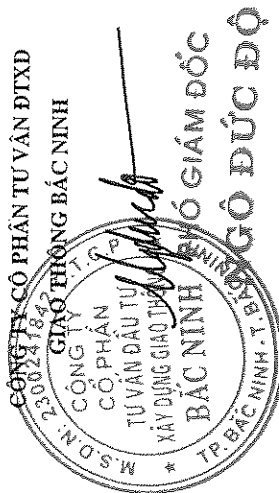 CÔNG TY CỔ PHẦN TƯ VẤN ĐTXD
GIAO THÔNG BẮC NINH
CÔNG TY
CỔ PHẦN
TƯ VẤN ĐẦU TƯ
XÂY DỰNG GIAO THÔNG
BẮC NINH
TP. BẮC NINH - T. BẮC NINH
PHÓ GIÁM ĐỐC
NGÔ ĐỨC ĐỘ